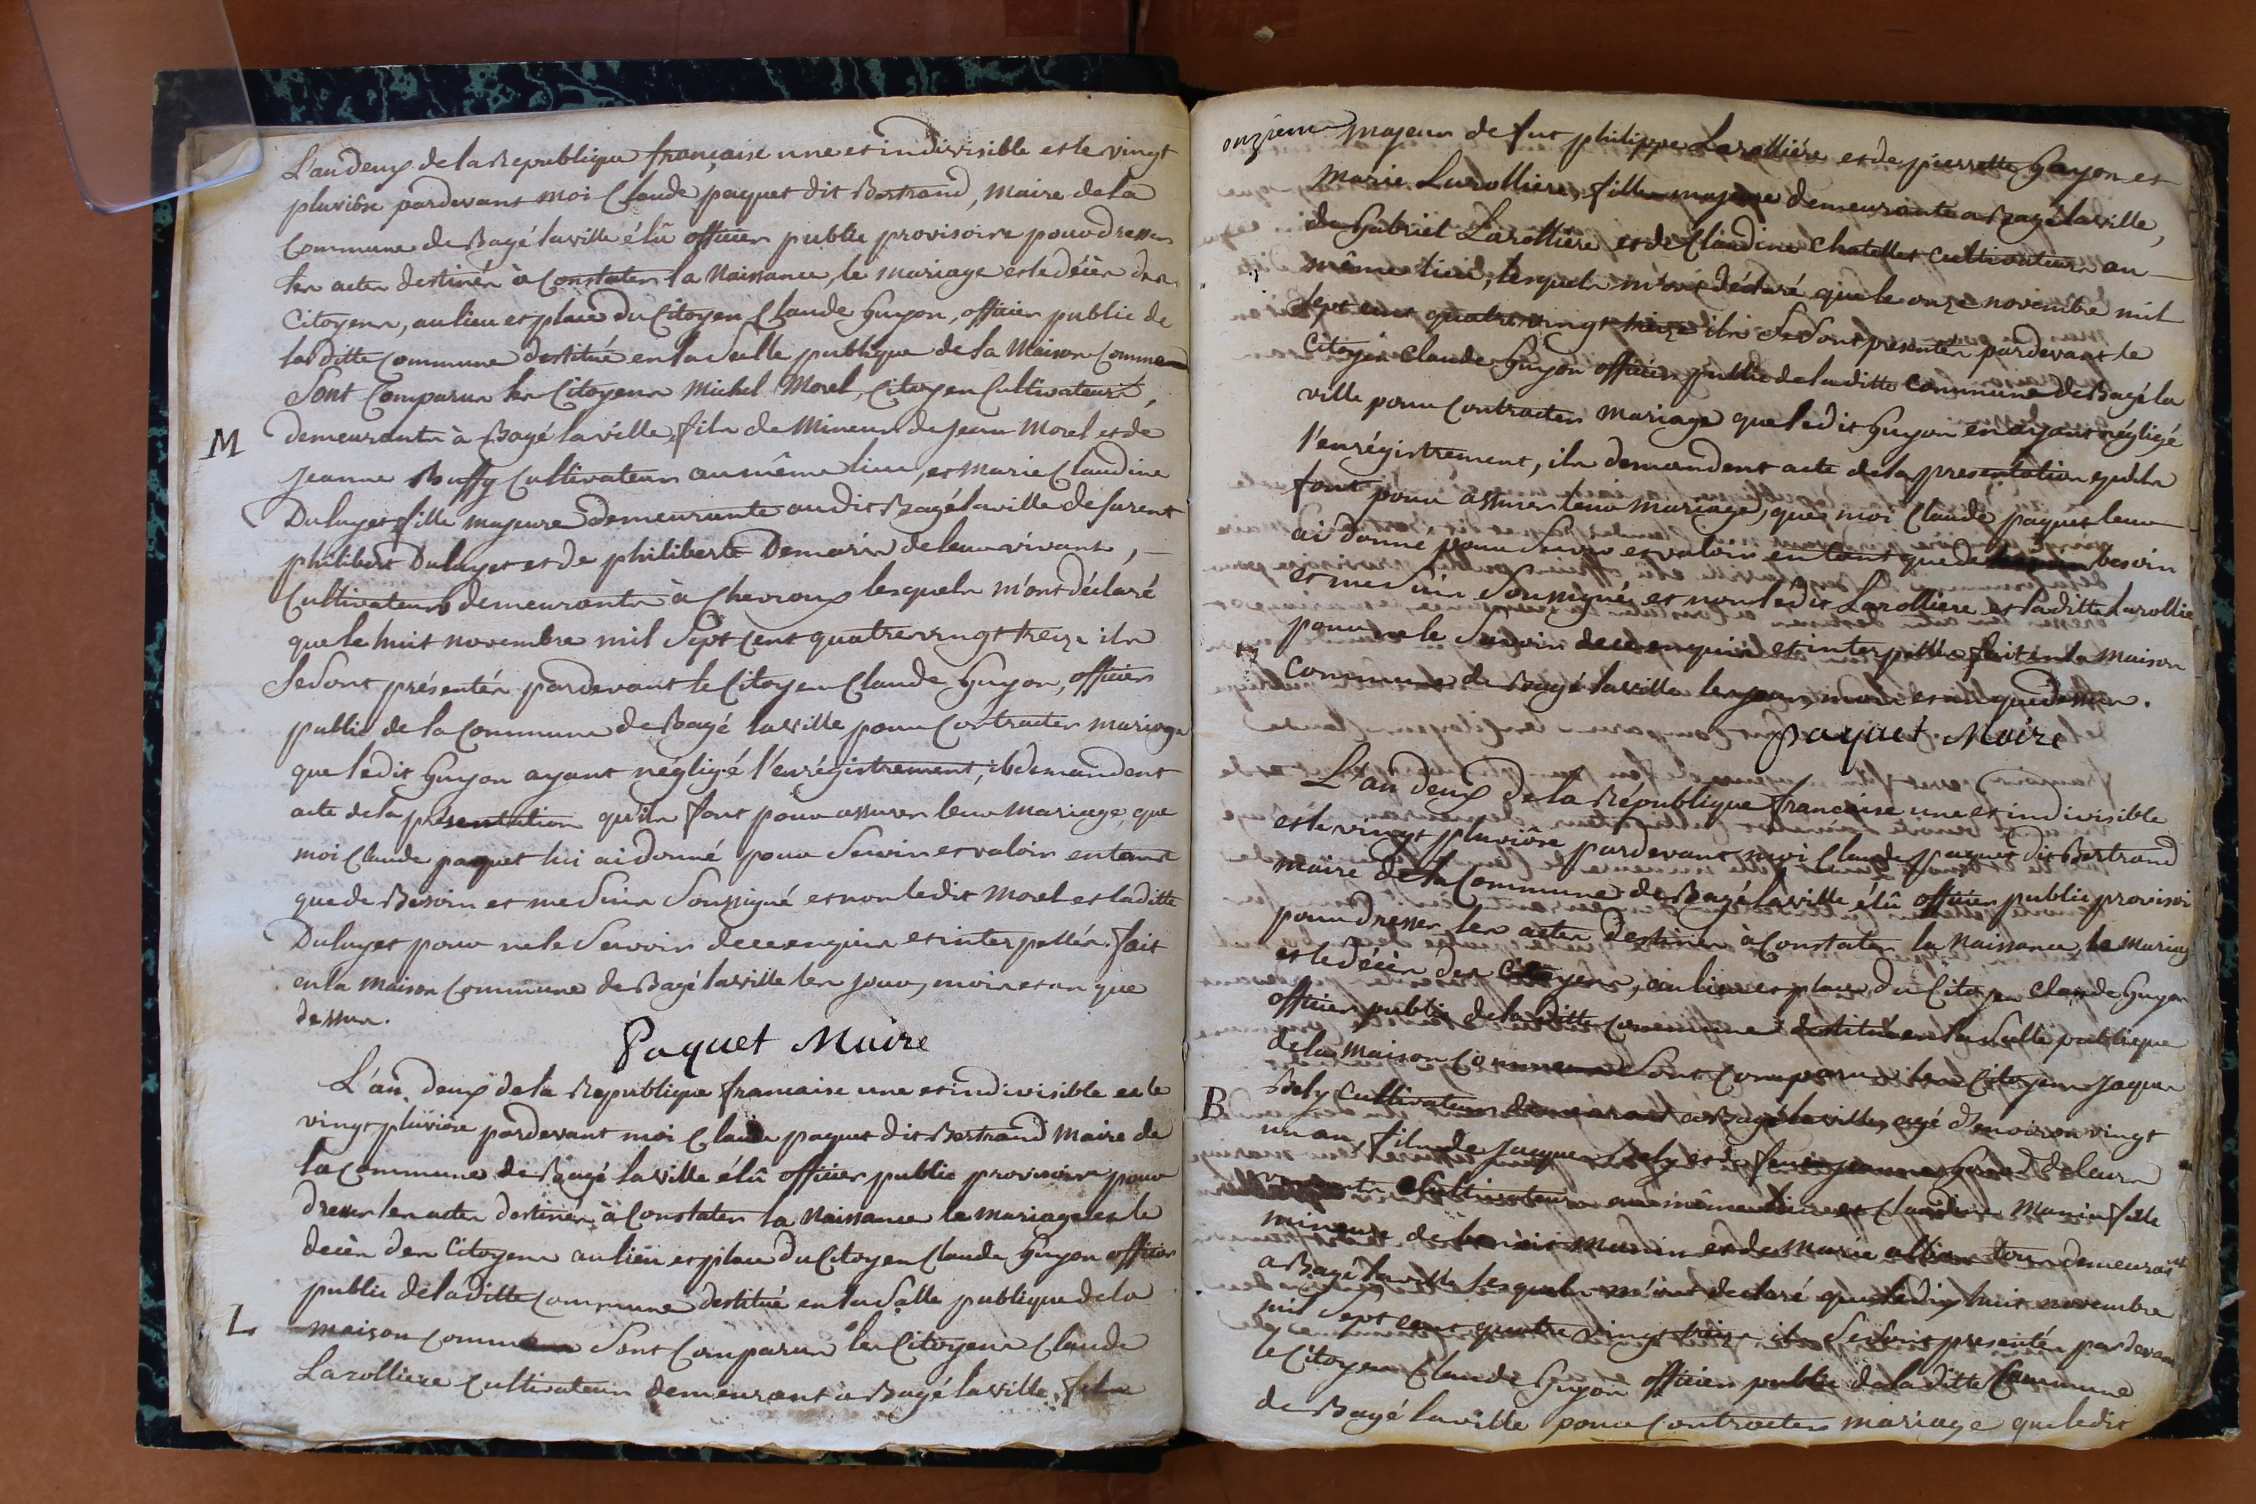 L'an deux de la Republique française une et indivisible et le vingt
pluviôse pardevant moi Claude paquet dit Bertrand, Maire de la
Commune de Bagé laville élû officier public provisoire pour dresser
les actes destinés à Constater la Naissance, le mariage et le décès des
Citoyens, au lieu et place du Citoyen Claude Guyon, officier public de
laditte Commune destitué en la Salle publique de la Maison Commune
Sont Comparus les Citoyens Michel Morel, Citoyen Cultivateur,
M
demeurants à Bagé laville, fils de Mineur de Jean Morel et de
Jeanne Buffy Cultivateurs au même lieu, et Marie Claudine
Duluyet fille majeure demeurante audit Bagé laville defurent
philibert Duluyet et de philiberte Demarin de leur vivant,
Cultivateurs demeurants à Chevroux lesquels m'ont déclaré
que le huit novembre mil Sept Cent quatre vingt treize ils
Se Sont présentés pardevant le Citoyen Claude Guyon, officier
public de la Commune de Bagé laville pour Contracter mariage
que ledit Guyon ayant négligé l'enrégistrement, ils demandent
acte de la présentation qu'ils font pour assurer leur mariage, que
moi Claude paquet lui ai donné pour Servir et valoir en tant
que de Besoin et me Suis Soussigné et non ledit Morel et laditte
Duluyet pour ne le Savoir de ce enquis et interpellés. fait
en la Maison Commune de Bagé laville les jour, mois et an que
dessus.
Paquet Maire
L'an deux de la Republique francaise une et indivisible et le
vingt pluviose pardevant moi Claude paquet dit Bertrand Maire de
la Commune de Bagé laville élû officier public provisoire pour
dresser les actes destinés à Constater la Naissance le mariage et le
decès des Citoyens au lieu et place du Citoyen Claude Guyon officier
public de laditte Commune destitué en la Salle publique de la
L
maison Commune Sont Comparus les Citoyens Claude
Larolliere Cultivateur demeurant à Bagé laville, fils
onzieme
majeur de fut philippe Larollière et de pierrette Guyon et
Marie Larolliere, fille majeure demeurante a Bagé laville,
de Gabriel Larollière et de Claudine Chatellet Cultivateurs au
même lieu, lesquels m'ont déclaré que le onze novembre mil
Sept cent quatre vingt treize ils Se Sont presentés pardevant le
Citoyen Claude Guyon officier public de laditte Commune de Bagé la
ville pour Contracter mariage que ledit Guyon en ayant négligé
l'enrégistrement, ils demandent acte de la presentation qu'ils
font pour assurer leur mariage, que moi Claude paquet leur
ai donné pour Servir et valoir en tant que de besoin
et me Suis Soussigné et non ledit Larolliere et laditte Larolliere
pour ne le Savoir de ce enquis et interpellés fait en la Maison
Commune de Bagé laville les jour, mois et an que dessus.
Paquet Maire
L'an deux de la République française une et indivisible
et le vingt pluviôse pardevant moi Claude paquet dit Bertrand
maire de la Commune de Bagé laville élû officier public provisoi
pour dresser les actes destinés à Constater la Naissance, le mariag
et le décès des Citoyens, au lieu et place du Citoyen Claude Guyon
officier public de laditte Commune destitué en la Salle publique
de la Maison Commune Sont Comparus les Citoyens Jaques
B
Bely Cultivateur demeurant a Bagé laville, agé d'environ vingt
un an, fils de Jacques Bely et de feue Jeanne de leurs
vivants Cultivateurs au même lieu et Claudine Manin fille
mineure de benoit Manin et de Marie tous demeurant
a Bagé laville lesquels m'ont declaré que le dix huit novembre
mil Sept cent quatre vingt treize ils Se Sont presentés pardevant
le Citoyen Claude Guyon officier public de laditte Commune
de Bagé laville pour Contracter mariage que ledit